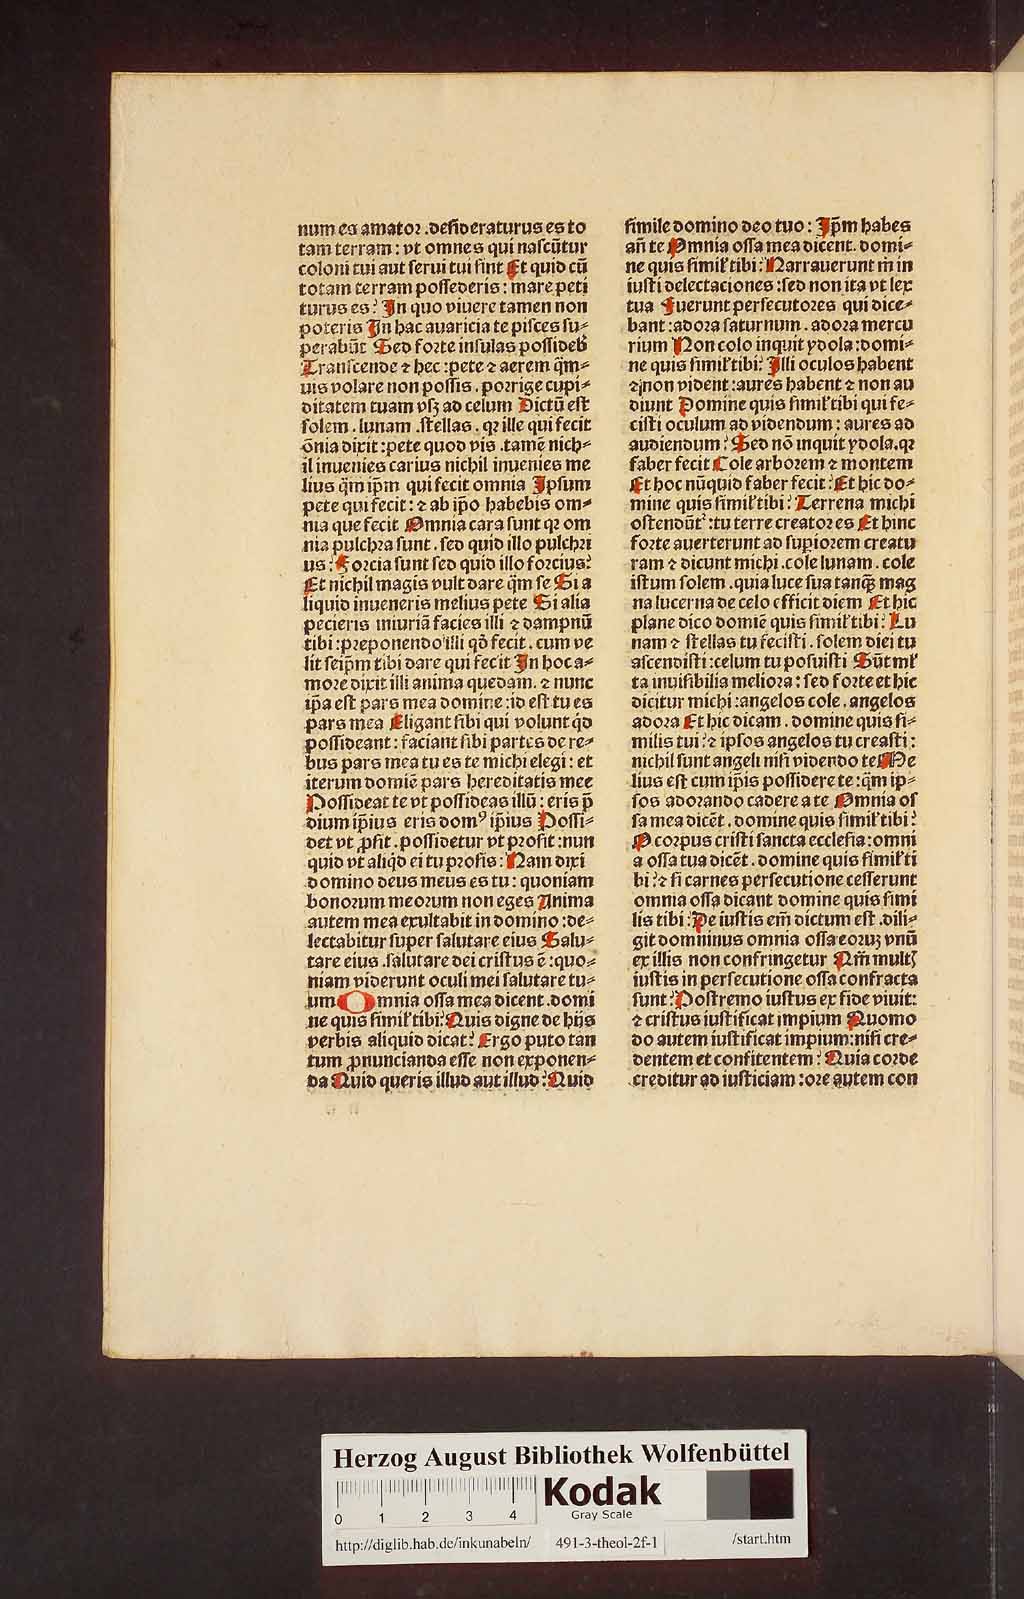 num es amator .desideraturus es to
tam terram : vt omnes qui nascūtur
coloni tui aut serui tui sint Et quid cū
totam terram possederis : mare peti
turus es? In quo viuere tamen non
poteris In hac auaricia te pisces su⸗
perabūt Sed forte insulas possideb̄
Transcende ⁊ hec : pete ⁊ aerem q̄m⸗
uis volare non possis . porrige cupi⸗
ditatem tuam vsꝫ ad celum Dictū est
solem . lunam . stellas . qꝛ ille qui fecit
ōnia dixit : pete quod vis . tamē nich⸗
il inuenies carius nichil inuenies me
lius q̄m ip̄m qui fecit omnia Ipsum
pete qui fecit : ⁊ ab ip̄o habebis om⸗
nia que fecit Omnia cara sunt qꝛ om
nia pulchra sunt . sed quid illo pulchri
us? Forcia sunt sed quid illo forcius?
Et nichil magis vult dare q̄m se Si a
liquid inueneris melius pete Si alia
pecieris iniuriā facies illi ⁊ dampnū
tibi : preponendo illi qd̄ fecit . cum ve
lit seip̄m tibi dare qui fecit In hoc a⸗
more dixit illi anima quedam . ⁊ nunc
ip̄a est pars mea domine : id est tu es
pars mea Eligant sibi qui volunt q̄d
possideant : faciant sibi partes de re⸗
bus pars mea tu es te michi elegi : et
iterum domīe pars hereditatis mee
Possideat te vt possideas illū : eris p̄
dium ip̄ius eris domꝰ ip̄ius Possi⸗
det vt ꝓsit . possidetur vt prosit : nun
quid vt aliq̄d ei tu prosis? Nam dixi
domino deus meus es tu : quoniam
bonorum meorum non eges Anima
autem mea exultabit in domino : de⸗
lectabitur super salutare eius Salu⸗
tare eius .salutare dei cristus ē : quo⸗
niam viderunt oculi mei salutare tu⸗
um Omnia ossa mea dicent .domi
ne quis simil' tibi? Quis digne de hijs
verbis aliquid dicat? Ergo puto tan
tum ꝓnuncianda esse non exponen⸗
da Quid queris illud aut illud? Quid
simile domino deo tuo? Ip̄m habes
an̄ te Omnia ossa mea dicent . domi⸗
ne quis simil' tibi? Narrauerunt m̄ in
iusti delectaciones : sed non ita vt lex
tua Fuerunt persecutores qui dice⸗
bant : adora saturnum . adora mercu
rium Non colo inquit ydola : domi⸗
ne quis simil' tibi? Illi oculos habent
⁊ non vident : aures habent ⁊ non au
diunt Domine quis simil' tibi qui fe⸗
cisti oculum ad videndum : aures ad
audiendum? Sed nō inquit ydola . qꝛ
faber fecit Cole arborem ⁊ montem
Et hoc nūquid faber fecit? Et hic do⸗
mine quis simil' tibi? Terrena michi
ostendūt' : tu terre creator es Et hinc
forte auerterunt ad superiorem creatu
ram ⁊ dicunt michi . cole lunam . cole
istum solem . quia luce sua tanqꝫ mag
na lucerna de celo efficit diem Et hic
plane dico domīe quis simil' tibi? Lu
nam ⁊ stellas tu fecisti . solem diei tu
ascendisti : celum tu posuisti Sūt ml'
ta inuisibilia meliora : sed forte et hic
dicitur michi : angelos cole . angelos
adora Et hic dicam . domine quis si⸗
milis tui? ⁊ ipsos angelos tu creasti :
nichil sunt angeli nisi videndo te Me
lius est cum ip̄is possidere te : q̄m ip⸗
sos adorando cadere a te Omnia os
sa mea dicēt . domine quis simil' tibi?
O corpus cristi sancta ecclesia : omni
a ossa tua dicēt . domine quis simil' ti
bi? ⁊ si carnes persecutione cesserunt
omnia ossa dicant domine quis simi
lis tibi? De iustis em̄ dictum est .dili⸗
git domininus omnia ossa eoruꝫ vnū
ex illis non confringetur Q̄m multꝭ
iustis in persecutione ossa confracta
sunt? Postremo iustus ex fide viuit :
⁊ cristus iustificat impium Quomo
do autem iustificat impium : nisi cre⸗
dentem et confitentem? Quia corde
creditur ad iusticiam : ore autem con
Herzog August Bibliothek Wolfenbüttel
0 1 2 3 4
Kodak
Gray Scale
http://diglib.hab.de/inkunabeln/ 491-3-theol-2f-1 /start.htm